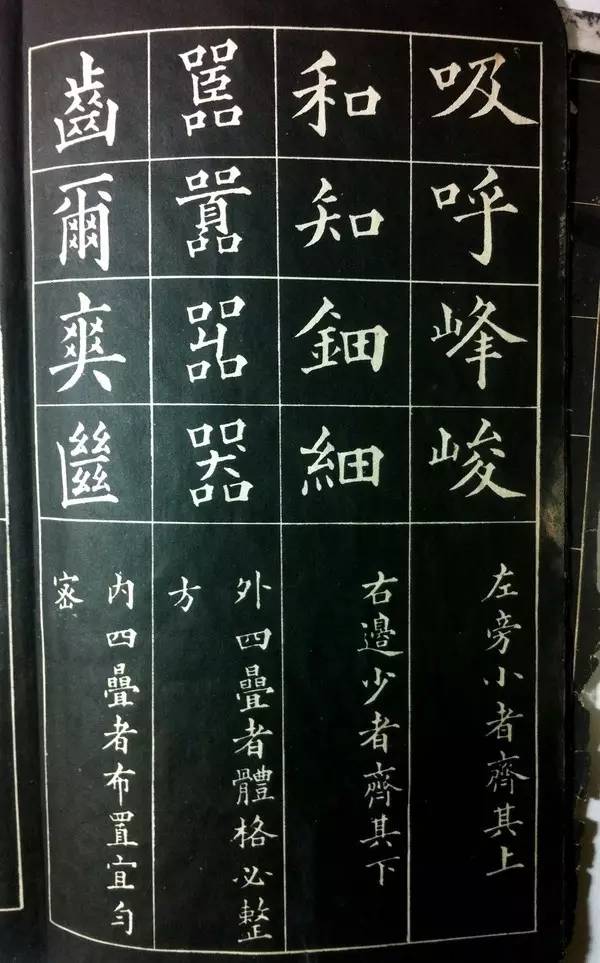 吸呼峰峻
左旁小者齊其上
和知鈿細
右邊少者齊其下
嚚囂嘂器
外四疊者體格必整
方
齒爾爽㡭
内四疊者布置宜勻
密